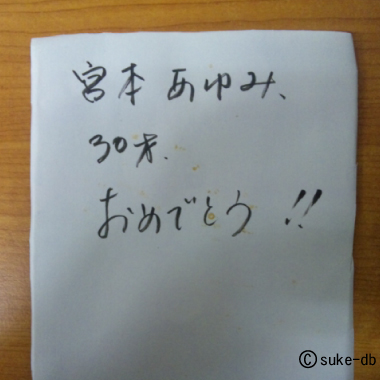 宮本 あゆみ、
30才.
おめでとう!!
©suke-db